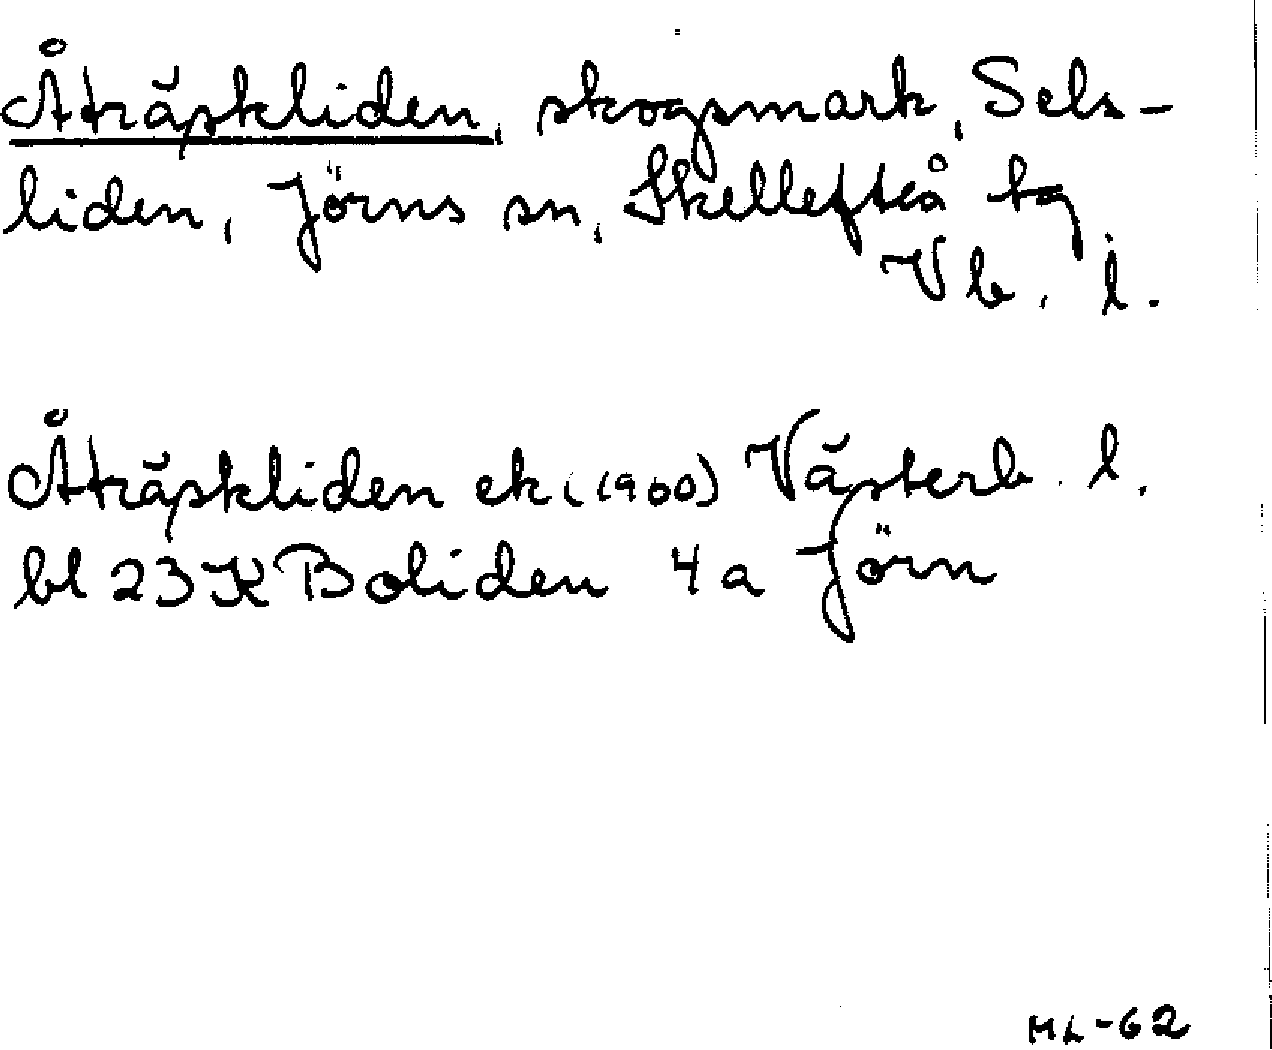 Åträskliden, skogsmark, Sels-
liden, Jörns sn, Skellefteå tg
Vb. l.
Åträskliden ek (1960) Västerb. l.
bl 23K Boliden 4a Jörn
ML-62